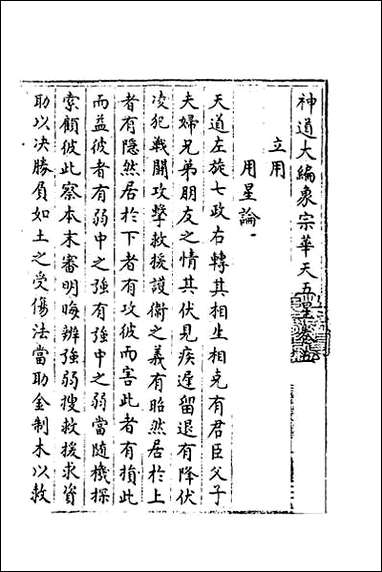 神道大編象宗華天五星
立用
用星論
天道左旋七政右轉其相生相尅有君臣父子
夫婦兄弟朋友之情其伏見疾遲留退有降伏
凌犯戰鬪攻擊救援護衞之義有昭然居於上
者有隐然居於下者有攻彼而害此者有損此
而益彼者有弱中之强有强中之弱當随機探
索顧彼此察本末審明晦辨強弱搜救援求資
助以决勝負如土之受傷法當助金制木以救